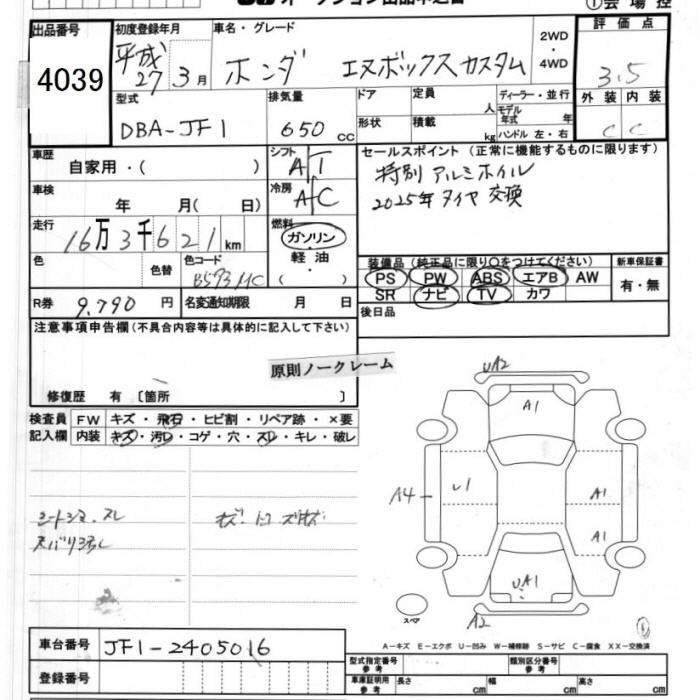 出品番号 4039
初度登録年月 平成27 3月
車名・グレード ホンダ エヌボックスカスタム
2WD・4WD
①会場控
評価点 3.5
型式 DBA-JF1
排気量 650 cc
ドア 定員 人
形状 積載 kg
ディーラー・並行
モデル年式 年
ハンドル 左・右
外装 内装
C C
車歴 自家用・( )
シフト AT
車検 年 月(日)
冷房 AC
走行 16万3千621km
燃料 ガソリン
軽油
( ・ )
色 色替 色コード B593MC
R券 9,790円
名変通知期限 月 日
セールスポイント(正常に機能するものに限ります)
特別 アルミホイル
2025年タイヤ交換
装備品(純正品に限り○をつけてください)
PS PW ABS エアB AW
SR ナビ TV カワ
新車保証書
有・無
後日品
注意事項申告欄(不具合内容等は具体的に記入して下さい)
原則ノークレーム
修復歴 有〔箇所 〕
検査員記入欄
FW キズ・飛石・ヒビ割・リペア跡・×要
内装 キズ・汚レ・コゲ・穴・スレ・キレ・破レ
UA2
A1
A4
U1
A1
A1
UA1
A2
スペア
A－キズ E－エクボ U－凹み W－補修跡 S－サビ C－腐食 XX－交換済
車台番号 JF1-2405016
登録番号
型式指定番号 参考
類別区分番号 参考
車庫証明用 参考 長さ cm 幅 cm 高さ cm